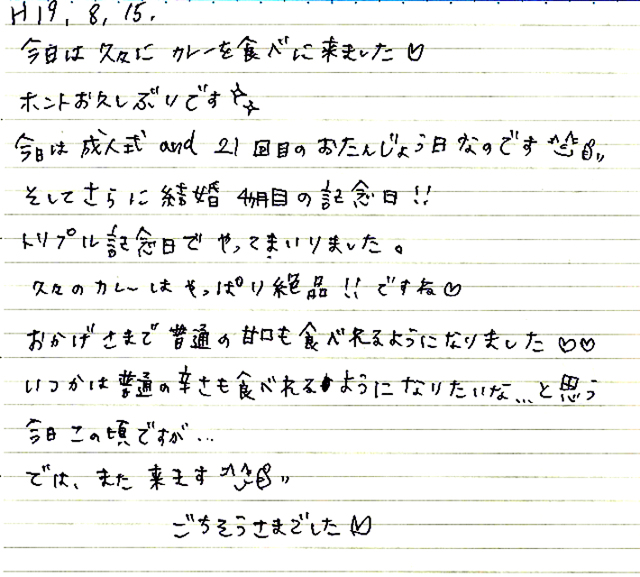 H19. 8. 15.
今日は 久々に カレーを食べに来ました♡
ホントお久しぶりです☆
今日は 成人式 and 21回目の おたんじょう日なのです
そしてさらに 結婚 4ヶ月目の記念日!!
トリプル記念日で やってまいりました。
久々のカレーは やっぱり絶品!!ですね♡
おかげさまで 普通の甘口も食べれるようになりました♡♡
いつかは普通の辛さも食べれるようになりたいな…と思う
今日この頃ですが…
では、また来ます
ごちそうさまでした♡